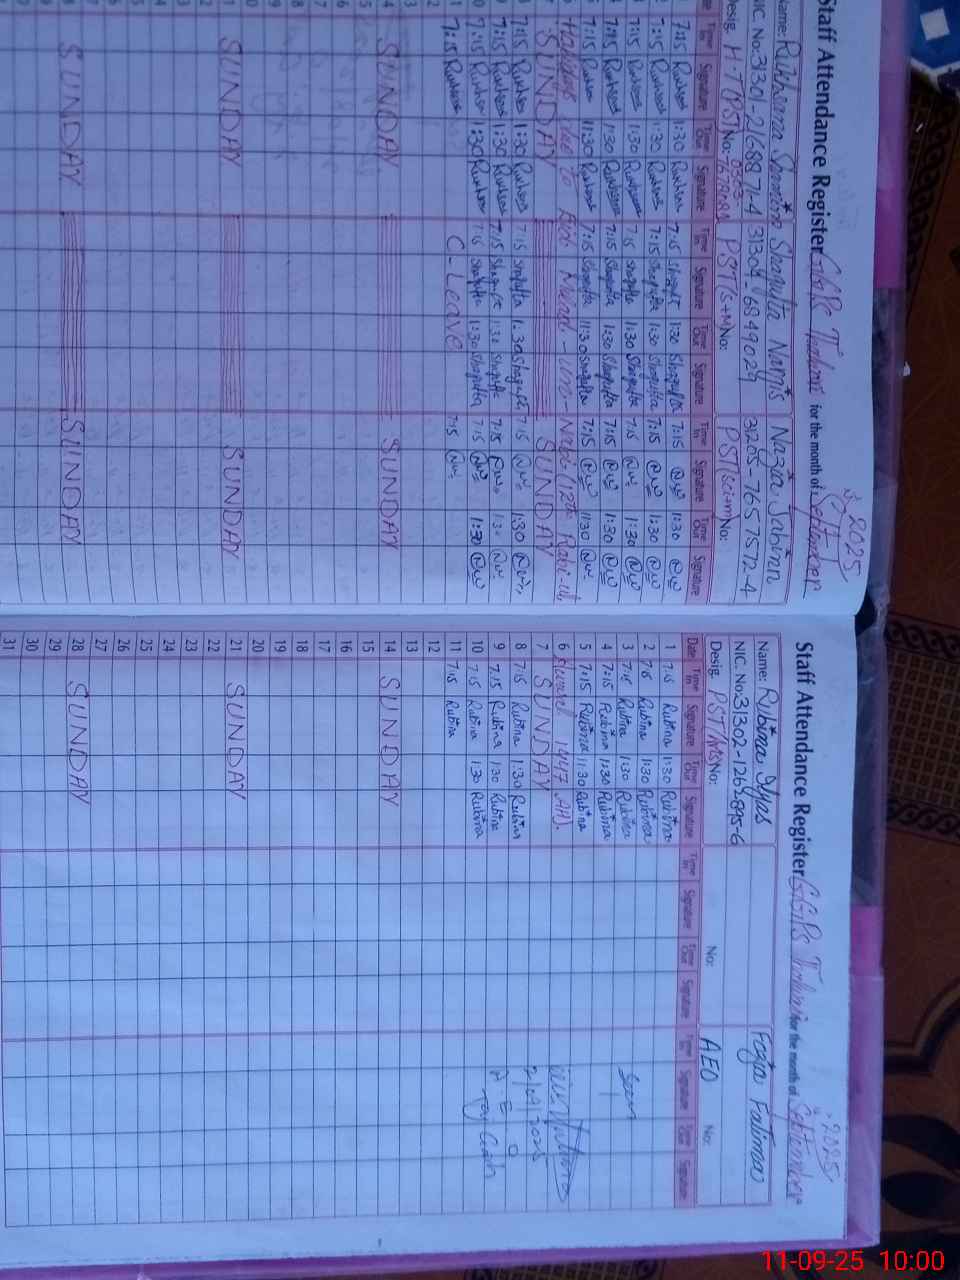 Staff Attendance Register GGPS for the month of September 2025
Name: Rukhsana Samim Shagufta Nargis Nazia Jabinn
NIC. No: 31301-2168871-4 31304-6849029 31205-7657572-4
Desig. H.T(PST) No: PST(S+M) No: PST(sci+m) No:
Date Time In Signature Time Out Signature Time In Signature Time Out Signature Time In Signature Time Out Signature
7:15 1:30 7:15 Shagufta 1:30 Shagufta 7:15 1:30
7:15 1:30 7:15 Shagufta 1:30 Shagufta 7:15 1:30
7:15 1:30 7:15 Shagufta 1:30 Shagufta 7:15 1:30
7:15 1:30 7:15 Shagufta 1:30 Shagufta 7:15 1:30
7:15 11:30 7:15 Shagufta 11:30 Shagufta 7:15 11:30
Holiday due to Eid Milad-un-Nabi (12th Rabi-ul
7 SUNDAY SUNDAY
7:15 1:30 7:15 Shagufta 1:30 Shagufta 7:15 1:30
7:15 1:30 7:15 Shagufta 1:30 Shagufta 7:15 1:30
7:15 1:30 7:15 Shagufta 1:30 Shagufta 7:15 1:30
7:15 C-Leave 7:15
2
3
4 SUNDAY SUNDAY
5
6
7
8
9
0
1 SUNDAY SUNDAY
2
3
4
5
6
7
8 SUNDAY SUNDAY
9
0
Staff Attendance Register GGPS for the month of September 2025
Name: Rubina Ilyas Fozia Fatima
NIC. No: 31302-1263895-6
Desig. PST/MS No: No: AEO No:
Date Time In Signature Time Out Signature Time In Signature Time Out Signature Time In Signature Time Out Signature
1 7:15 Rubina 1:30 Rubina
2 7:15 Rubina 1:30 Rubina
3 7:15 Rubina 1:30 Rubina
4 7:15 Rubina 1:30 Rubina
5 7:15 Rubina 11:30 Rubina
6 Awwal 1447 AH).
7 SUNDAY
8 7:15 Rubina 1:30 Rubina 2/09/2025
9 7:15 Rubina 1:30 Rubina A.E.O
10 7:15 Rubina 1:30 Rubina
11 7:15 Rubina
12
13
14 SUNDAY
15
16
17
18
19
20
21 SUNDAY
22
23
24
25
26
27
28 SUNDAY
29
30
31
11-09-25 10:00